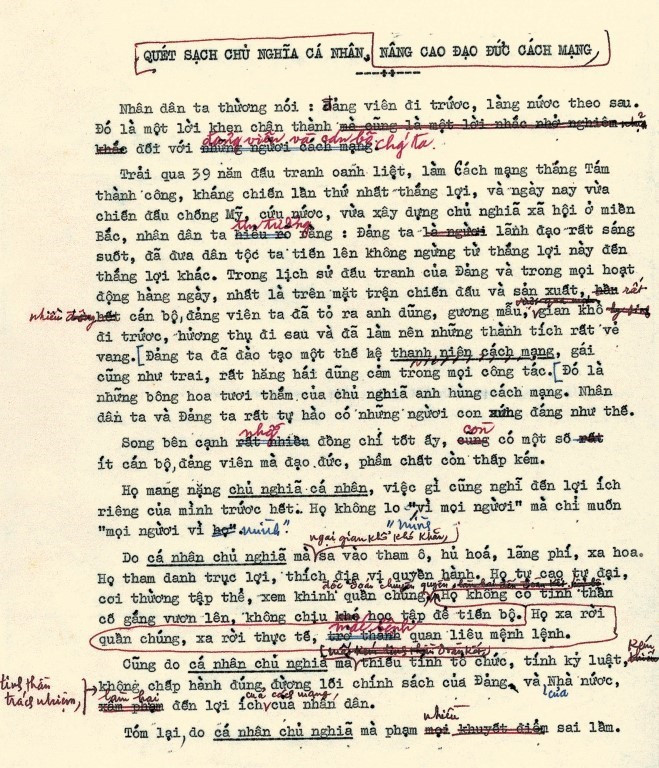 QUÉT SẠCH CHỦ NGHĨA CÁ NHÂN, NÂNG CAO ĐẠO ĐỨC CÁCH MẠNG
Nhân dân ta thường nói : đảng viên đi trước, làng nước theo sau.
Đó là một lời khen chân thành mà cũng là một lời nhắc nhở nghiêm
đảng viên và cán bộ chúng ta.
khắc đối với những người cách mạng
Trải qua 39 năm đấu tranh oanh liệt, làm Cách mạng tháng Tám
thành công, kháng chiến lần thứ nhất thắng lợi, và ngày nay vừa
chiến đấu chống Mỹ, cứu nước, vừa xây dựng chủ nghĩa xã hội ở miền
tin tưởng
Bắc, nhân dân ta hiểu rõ rằng : Đảng ta là người lãnh đạo rất sáng
suốt, đã đưa dân tộc ta tiến lên không ngừng từ thắng lợi này đến
thắng lợi khác. Trong lịch sử đấu tranh của Đảng và trong mọi hoạt
động hàng ngày, nhất là trên mặt trận chiến đấu và sản xuất, rất
nhiều cán bộ, đảng viên ta đã tỏ ra anh dũng, gương mẫu, gian khổ
đi trước, hưởng thụ đi sau và đã làm nên những thành tích rất vẻ
vang. [Đảng ta đã đào tạo một thế hệ thanh niên cách mạng, gái
cũng như trai, rất hăng hái dũng cảm trong mọi công tác. [Đó là
những bông hoa tươi thắm của chủ nghĩa anh hùng cách mạng. Nhân
dân ta và Đảng ta rất tự hào có những người con xứng đáng như thế.
những còn
Song bên cạnh rất nhiều đồng chí tốt ấy, cũng có một số rất
ít cán bộ, đảng viên mà đạo đức, phẩm chất còn thấp kém.
Họ mang nặng chủ nghĩa cá nhân, việc gì cũng nghĩ đến lợi ích
riêng của mình trước hết. Họ không lo "vì mọi người" mà chỉ muốn
"mọi người vì họ" mình". "mình
ngại gian khổ khó khăn,
Do cá nhân chủ nghĩa mà sa vào tham ô, hủ hoá, lãng phí, xa hoa.
Họ tham danh trục lợi, thích địa vị quyền hành. Họ tự cao tự đại,
độc đoán chuyên quyền.
coi thường tập thể, xem khinh quần chúng, Họ không có tinh thần
cố gắng vươn lên, không chịu khó học tập để tiến bộ. Họ xa rời
mắc bệnh
quần chúng, xa rời thực tế, trở thành quan liêu mệnh lệnh.
mất đoàn kết,
Cũng do cá nhân chủ nghĩa mà thiếu tính tổ chức, tính kỷ luật, kém
tinh thần
trách nhiệm,
không chấp hành đúng đường lối chính sách của Đảng và của Nhà nước,
làm hại của cách mạng,
xâm phạm đến lợi ích của nhân dân.
nhiều
Tóm lại, do cá nhân chủ nghĩa mà phạm mọi khuyết điểm sai lầm.